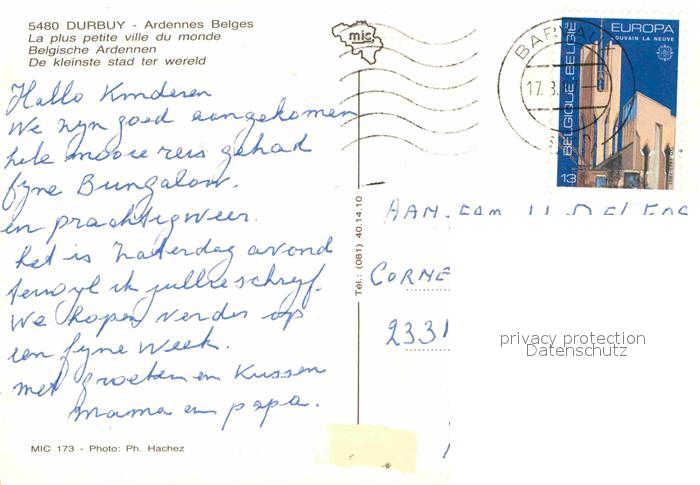 5480 DURBUY - Ardennes Belges
La plus petite ville du monde
Belgische Ardennen
De kleinste stad ter wereld
mic
BELGIQUE-BELGIË
EUROPA
LOUVAIN LA NEUVE
13F
BARVAUX
17.8.87
Hallo Kinderen
We zyn goed aangekomen
hele mooie reis gehad
fyne Bungalow.
en prachtig weer.
het is Zaterdag avond
terwyl ik jullie schryf.
We hopen verder op
een fyne week.
met groeten en Kussen
mama en papa.
Tel.: (081) 40.14.10
AAN. FAM
CORNE
2331
privacy protection
Datenschutz
MIC 173 - Photo: Ph. Hachez